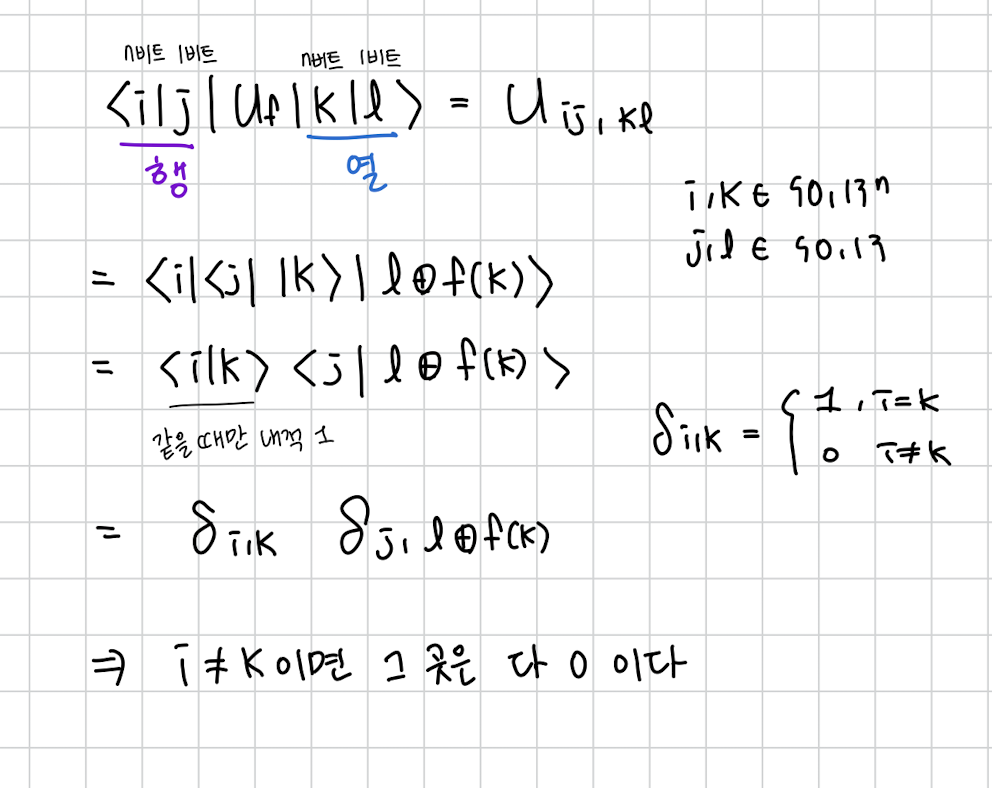 n비트 1비트 n비트 1비트
<i|j|U_f|k|l> = U_{ij,kl}
행 열
i,k ∈ {0,1}ⁿ
j,l ∈ {0,1}
= <i|<j| |k>| l⊕f(k)>
= <i|k> <j| l⊕f(k)>
같을 때만 내적 1
δ_{i,k} = { 1, i=k
0 i≠k
= δ_{i,k} δ_{j, l⊕f(k)}
⇒ i≠k이면 그 곳은 다 0 이다